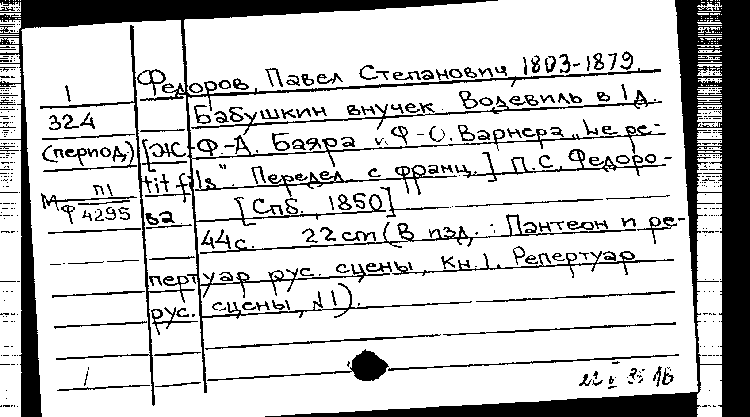 1
Федоров, Павел Степанович, 1803-1879.
324
Бабушкин внучек. Водевиль в 1 д.
(период) [Ж-Ф-А. Баяра и Ф-О. Варнера „Le pe-
tit fils". Передел. с франц.] П.С. Федоро-
ва [Спб., 1850]
М П1
Ф 4295
44 с. 22 cm (В изд.: Пантеон и ре-
пертуар рус. сцены, Кн. 1. Репертуар
рус. сцены, №1).